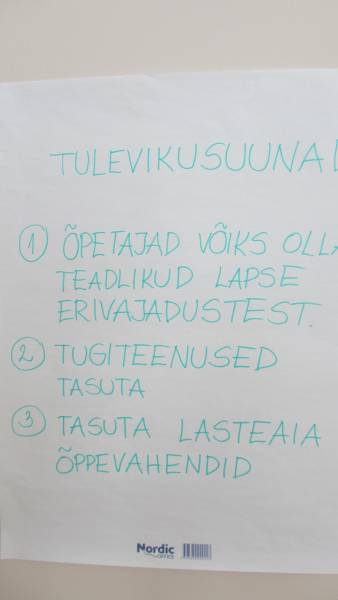 TULEVIKUSUUNA
1 ÕPETAJAD VÕIKS OLLA
TEADLIKUD LAPSE
ERIVAJADUSTEST.
2 TUGITEENUSED
TASUTA
3 TASUTA LASTEAIA
ÕPPEVAHENDID
Nordic
OFFICE